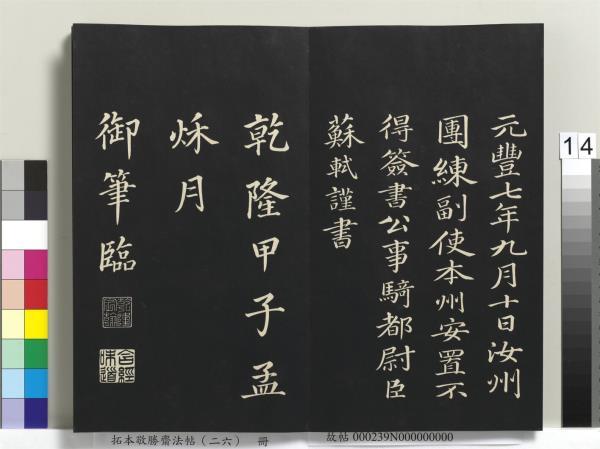 元豐七年九月十日汝州
團練副使本州安置不
得簽書公事騎都尉臣
蘇軾謹書
乾隆甲子孟
秌月
御筆臨
乾隆
宸翰
含經
味道
14
拓本敬勝齋法帖(二六) 冊
故帖 000239N000000000